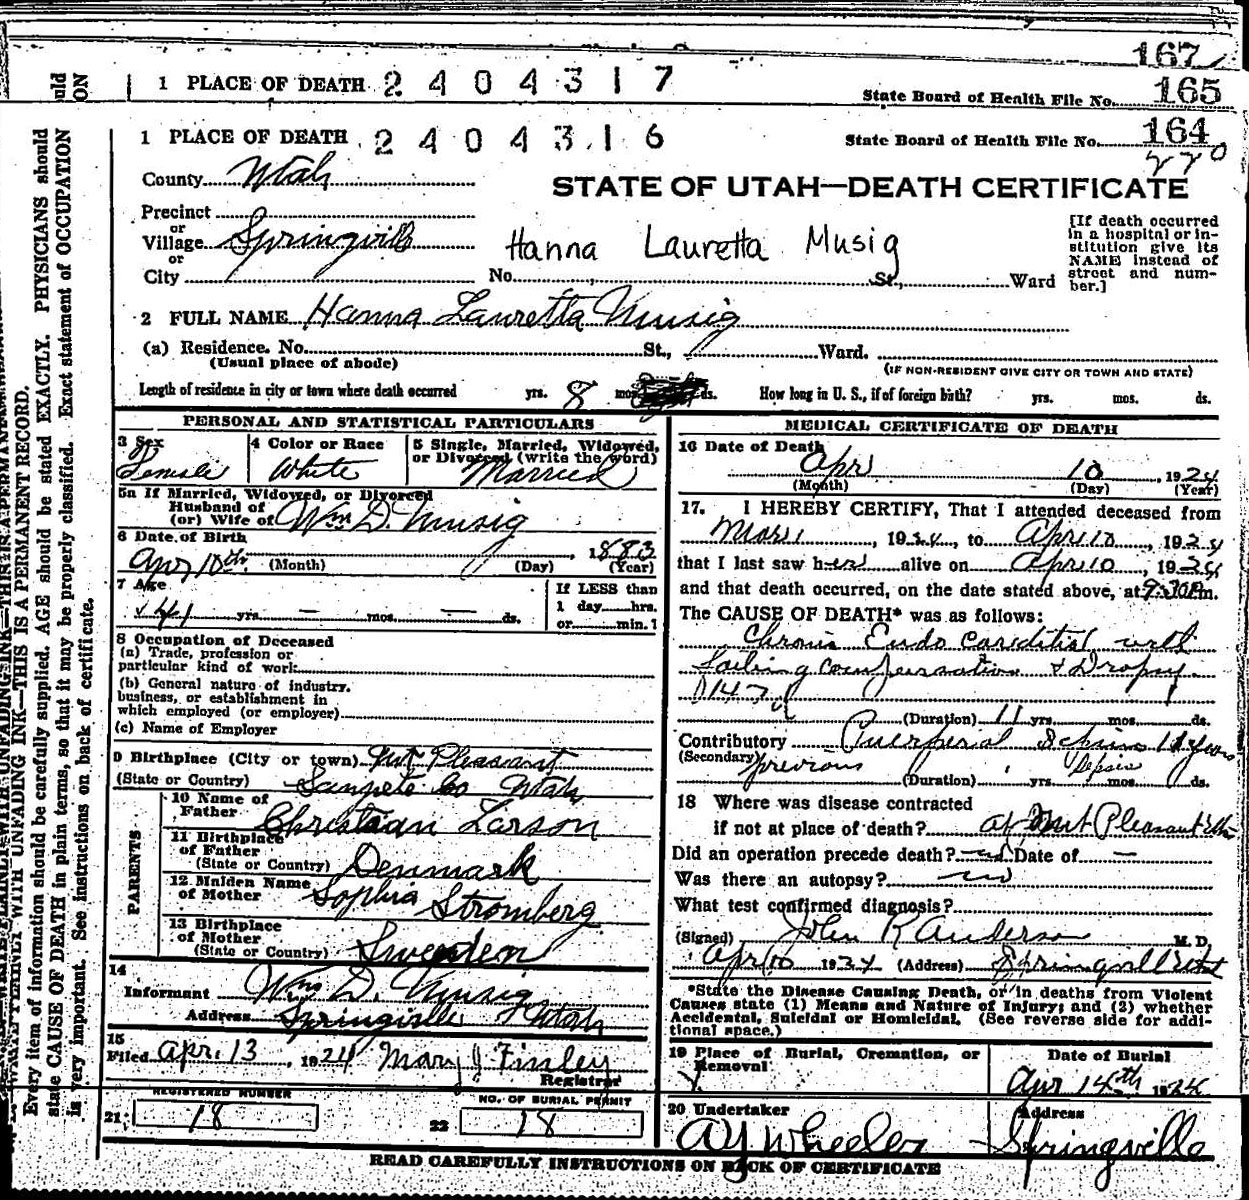 167
1 PLACE OF DEATH 2404317 State Board of Health File No. 165
1 PLACE OF DEATH 2404316 State Board of Health File No. 164
220
County Utah STATE OF UTAH—DEATH CERTIFICATE
Precinct
or
Village Springville
or
City
Hanna Lauretta Musig
No. St., Ward
[If death occurred
in a hospital or in-
stitution give its
NAME instead of
street and num-
ber.]
2 FULL NAME Hanna Lauretta Musig
(a) Residence. No. St., Ward.
(Usual place of abode) (IF NON-RESIDENT GIVE CITY OR TOWN AND STATE)
Length of residence in city or town where death occurred yrs. 8 mos. ds. How long in U. S., if of foreign birth? yrs. mos. ds.
PERSONAL AND STATISTICAL PARTICULARS
3 Sex
Female
4 Color or Race
White
5 Single, Married, Widowed,
or Divorced (write the word)
Married
5a If Married, Widowed, or Divorced
Husband of
(or) Wife of Wm D. Musig
6 Date of Birth
Apr 10th. 1883
(Month) (Day) (Year)
7 Age
41 yrs. — mos. — ds.
If LESS than
1 day hrs.
or min.
8 Occupation of Deceased
(a) Trade, profession or
particular kind of work
(b) General nature of industry,
business, or establishment in
which employed (or employer)
(c) Name of Employer
9 Birthplace (City or town) Mt Pleasant
(State or Country) Sanpete Co Utah
PARENTS
10 Name of
Father Christian Larson
11 Birthplace
of Father
(State or Country) Denmark
12 Maiden Name
of Mother Sophia Stromberg
13 Birthplace
of Mother
(State or Country) Sweeden
14
Informant Wm D. Musig
Address Springville Utah
15
Filed Apr. 13, 1924 Mary J Finley
Registrar
REGISTERED NUMBER
21. 18
NO. OF BURIAL PERMIT
22 18
MEDICAL CERTIFICATE OF DEATH
16 Date of Death
Apr 10, 1924
(Month) (Day) (Year)
17. I HEREBY CERTIFY, That I attended deceased from
Mar 1, 1924, to Apr 10, 1924
that I last saw her alive on Apr 10, 1924
and that death occurred, on the date stated above, at 9:30 P.m.
The CAUSE OF DEATH* was as follows:
Chronic Endo carditis with
failing compensation & Dropsy
(Duration) 11 yrs. mos. ds.
Contributory Puerperial 11 Years
(Secondary) previous Sepsis
(Duration) yrs. mos. ds.
18 Where was disease contracted
if not at place of death? at Mt Pleasant
Did an operation precede death? no Date of —
Was there an autopsy? no
What test confirmed diagnosis?
(Signed) John R Anderson M. D.
Apr 10 1924 (Address) Springville Utah
*State the Disease Causing Death, or in deaths from Violent
Causes state (1) Means and Nature of Injury; and (2) whether
Accidental, Suicidal or Homicidal. (See reverse side for addi-
tional space.)
19 Place of Burial, Cremation, or
Removal
Date of Burial
Apr 14th 1924
20 Undertaker
A Y Wheeler
Address
Springville
READ CAREFULLY INSTRUCTIONS ON BACK OF CERTIFICATE
WRITE PLAINLY WITH UNFADING INK—THIS IS A PERMANENT RECORD.
Every item of information should be carefully supplied. AGE should be stated EXACTLY. PHYSICIANS should
state CAUSE OF DEATH in plain terms, so that it may be properly classified. Exact statement of OCCUPATION
is very important. See instructions on back of certificate.